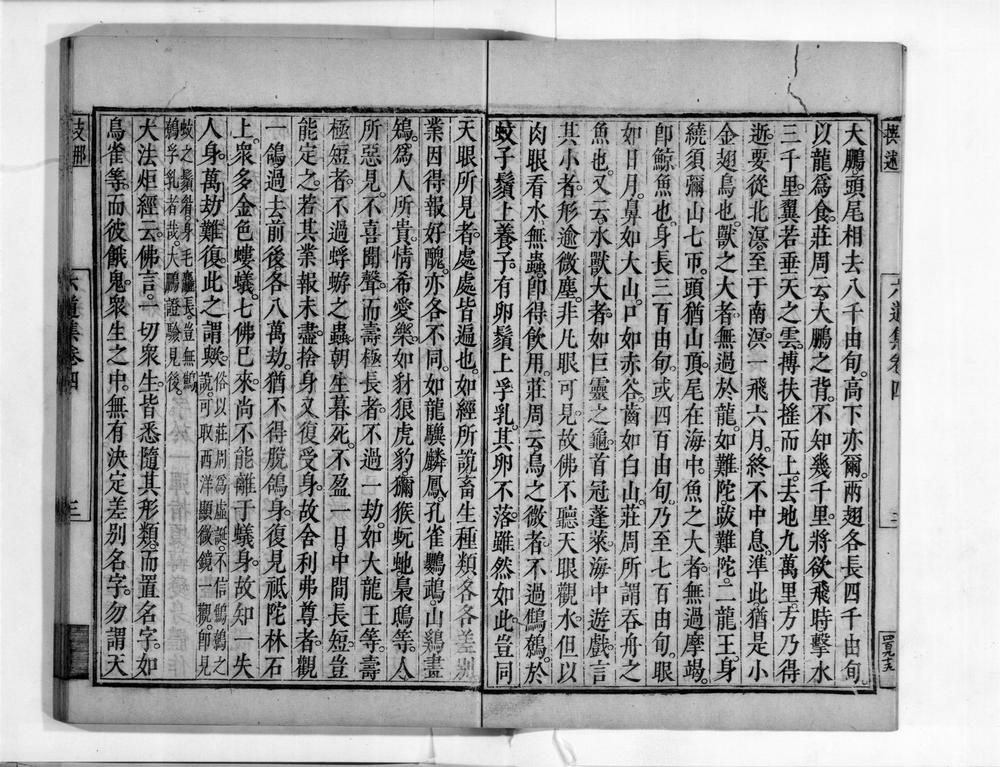 撰述
六道集卷四
三
大鵬頭尾相去八千由旬。高下亦爾。兩翅各長四千由旬
以龍爲食。莊周云。大鵬之背。不知幾千里。將欲飛時。擊水
三千里。翼若垂天之雲。搏扶搖而上。去地九萬里。方乃得
逝。要從北溟。至于南溟。一飛六月。終不中息。準此猶是小
金翅鳥也。獸之大者。無過於龍。如難陀。跋難陀。二龍王。身
繞須彌山七帀。頭猶山頂。尾在海中。魚之大者。無過摩竭。
卽鯨魚也。身長三百由旬。或四百由旬。乃至七百由旬。眼
如日月。鼻如大山。口如赤谷。齒如白山。莊周所謂吞舟之
魚也。又云。水獸大者。如巨靈之龜。首冠蓬萊。海中遊戲。言
其小者。形逾微塵。非凡眼可見。故佛不聽天眼觀水。但以
肉眼看水無蟲。卽得飲用。莊周云。鳥之微者。不過鷦鷯。於
蚊子鬚上養子。有卵鬚上孚乳。其卵不落。雖然如此。豈同
天眼所見者。處處皆遍也。如經所說。畜生種類。各各差別
業因得報。好醜亦各不同。如龍驥麟鳳。孔雀鸚鵡。山鷄畫
鴆。爲人所貴。情希愛樂。如豺狼虎豹。獼猴蚖虵梟鴟等。人
所惡見。不喜聞聲。而壽極長者。不過一劫。如大龍王等。壽
極短者。不過蜉蝣之蟲。朝生暮死。不盈一日。中間長短。豈
能定之。若其業報未盡。捨身又復受身。故舍利弗尊者。觀
一鴿過去前後各八萬劫。猶不得脫鴿身。復見祇陀林石
上。衆多金色螻蟻。七佛已來。尚不能離于蟻身。故知一失
人身。萬劫難復。此之謂歟。俗以莊周爲虛誕。不信鷦鷯之說。可取西洋顯微鏡一觀。卽見
蚊之鬚脊身毛麤長。豈無鷦鷯孚乳者哉。大鵬證驗見後。
大法炬經云。佛言。一切衆生。皆悉隨其形類。而置名字。如
鳥雀等。而彼餓鬼。衆生之中。無有決定差別名字。勿謂天
六道集卷四
三